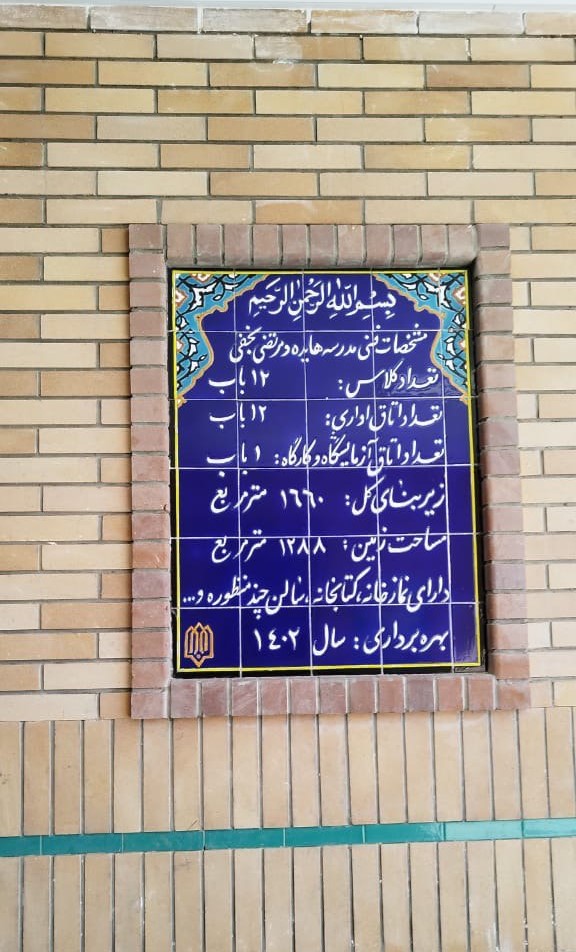 بِسْمِ اللهِ الرَّحْمٰنِ الرَّحیمِ
مشخصات فنی مدرسه هایده و مرتضی نجفی
تعداد کلاس: ۱۲ باب
تعداد اتاق اداری: ۱۲ باب
تعداد اتاق آزمایشگاه و کارگاه: ۱ باب
زیر بنای کل: ۱٦٦۰ متر مربع
مساحت زمین: ۱۲۸۸ متر مربع
دارای نمازخانه، کتابخانه، سالن چند منظوره و...
بهره برداری: سال ۱٤۰۲